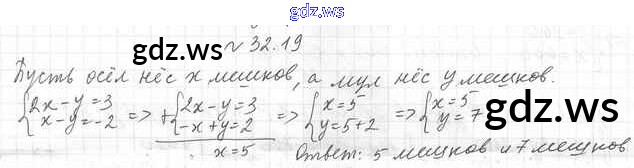 gdz.ws
№ 32.19
gdz.ws
Пусть осёл нёс x мешков, а мул нёс y мешков.
{2x-y=3 x-y=-2 => +{2x-y=3 -x+y=2 x=5 => {x=5 y=5+2 => {x=5 y=7
gdz.ws
Ответ: 5 мешков и 7 мешков
gdz.ws